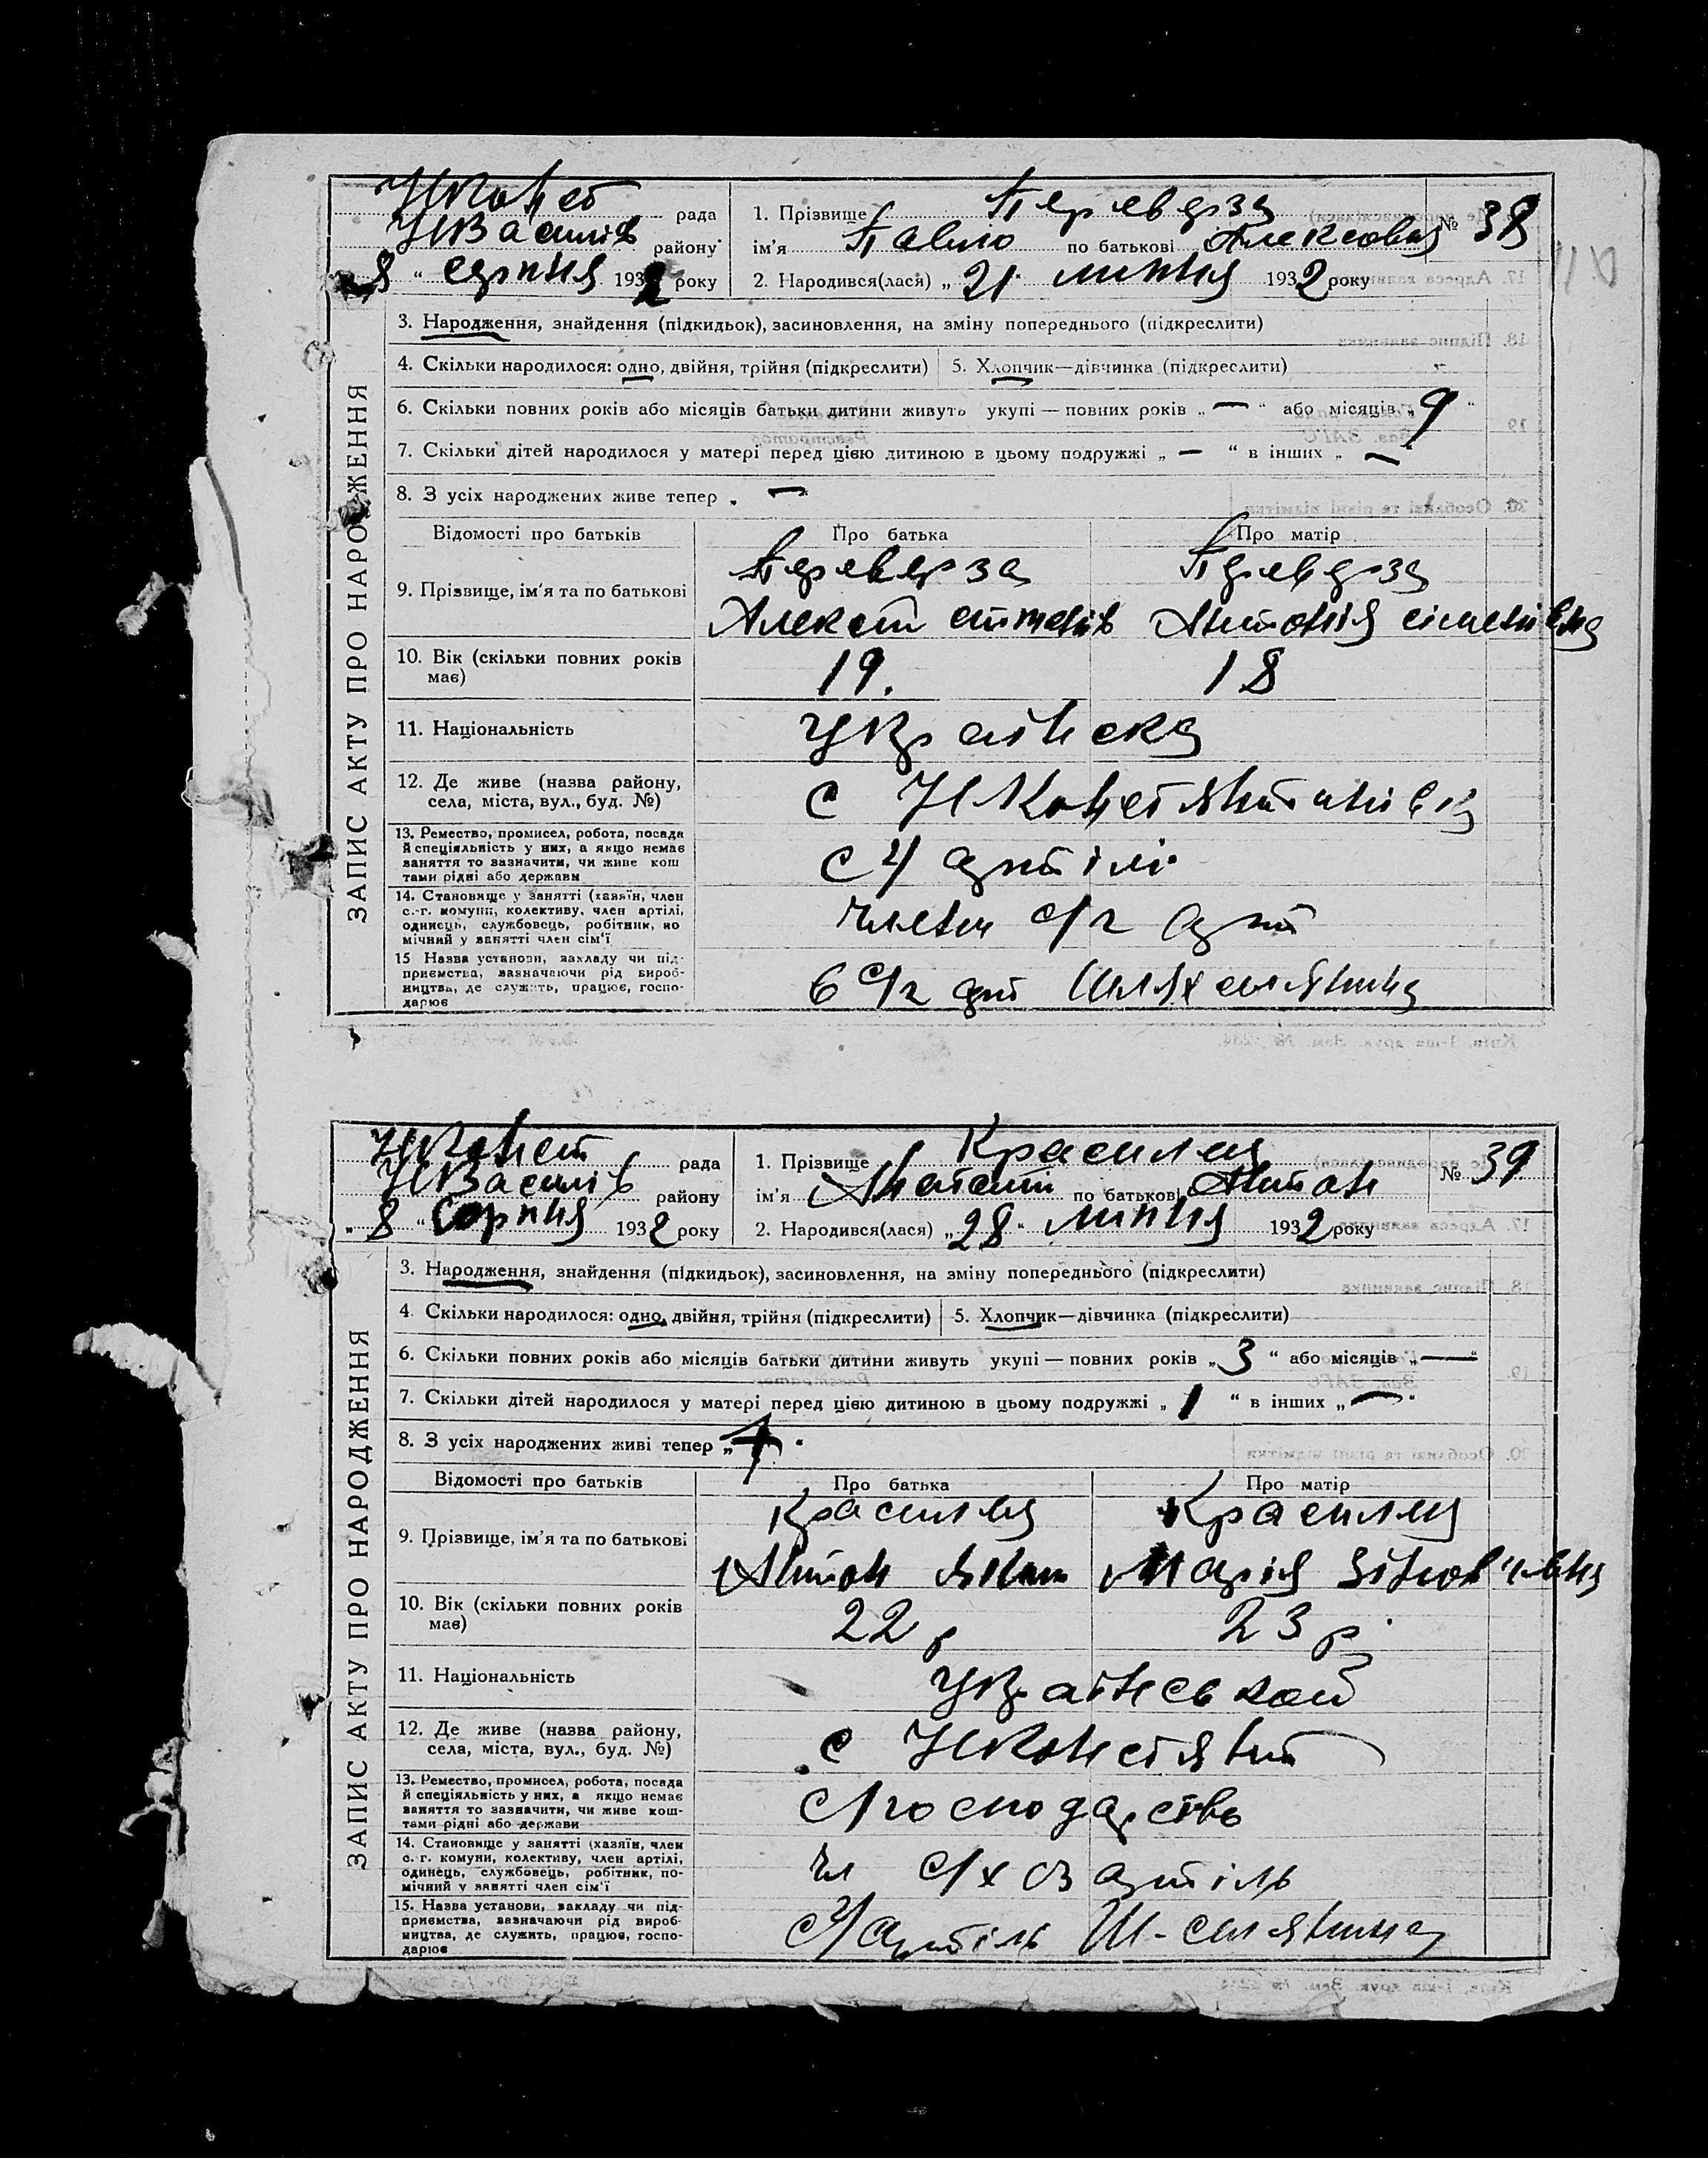 НКонст рада
НВасилів району
8 " серпня 1932 року
1. Прізвище Переверза
ім'я Павло по батькові Алексовия
№ 38
2. Народився(лася) „ 21 " липня 1932 року
ЗАПИС АКТУ ПРО НАРОДЖЕННЯ
3. Народження, знайдення (підкидьок), засиновлення, на зміну попереднього (підкреслити)
4. Скільки народилося: одно, двійня, трійня (підкреслити) 5. Хлопчик—дівчинка (підкреслити)
6. Скільки повних років або місяців батьки дитини живуть укупі — повних років „ — “ або місяців „ 9 “
7. Скільки дітей народилося у матері перед цією дитиною в цьому подружжі „ — “ в інших „ — “
8. З усіх народжених живе тепер „ —
Відомості про батьків Про батька Про матір
9. Прізвище, ім'я та по батькові
Переверза Переверза
Алексій Антонія Сіменівна
10. Вік (скільки повних років має) 19. 18
11. Національність Українска
12. Де живе (назва району, села, міста, вул., буд. №) с НКонстянтинівка
13. Ремество, промисел, робота, посада й спеціяльність у них, а якщо немає заняття то зазначити, чи живе кош тами рідні або держави
артілі
14. Становище у занятті (хазяїн, член с.-г. комуни, колективу, член артілі, одинець, службовець, робітник, по мічний у занятті член сім'ї
член с/г арт
15 Назва установи, закладу чи під- приємства, зазначаючи рід вироб- ництва, де служить, працює, госпо- дарює
в с/г арт Шлях селянина
НКонст рада
НВасилів району
„ 8 “ Серпня 1932 року
1. Прізвище Красиля
ім'я Анатоп по батькові Антон
№ 39
2. Народився(лася) „ 28 “ липня 1932 року
ЗАПИС АКТУ ПРО НАРОДЖЕННЯ
3. Народження, знайдення (підкидьок), засиновлення, на зміну попереднього (підкреслити)
4 Скільки народилося: одно, двійня, трійня (підкреслити) 5. Хлопчик—дівчинка (підкреслити)
6. Скільки повних років або місяців батьки дитини живуть укупі — повних років „ 3 “ або місяців „ — “
7. Скільки дітей народилося у матері перед цією дитиною в цьому подружжі „ 1 “ в інших „ — “
8. З усіх народжених живі тепер „
Відомості про батьків Про батька Про матір
9. Прізвище, ім'я та по батькові
Красиля Красиля
Антон Марія
10. Вік (скільки повних років має) 22 р 23 р.
11. Національність Українськой
12. Де живе (назва району, села, міста, вул., буд. №) с НКонстянт
13. Ремество, промисел, робота, посада й спеціяльність у них, а якщо немає заняття то зазначити, чи живе кош- тами рідні або держави
С/господарство
14. Становище у занятті (хазяїн, член с. г. комуни, колективу, член артілі, одинець, службовець, робітник, по- мічний у занятті член сім'ї
чл с/х оз артіль
15. Назва установи, закладу чи під- приємства, зазначаючи рід вироб- ництва, де служить, працює, госпо- дарює
артіль Ш-селянина